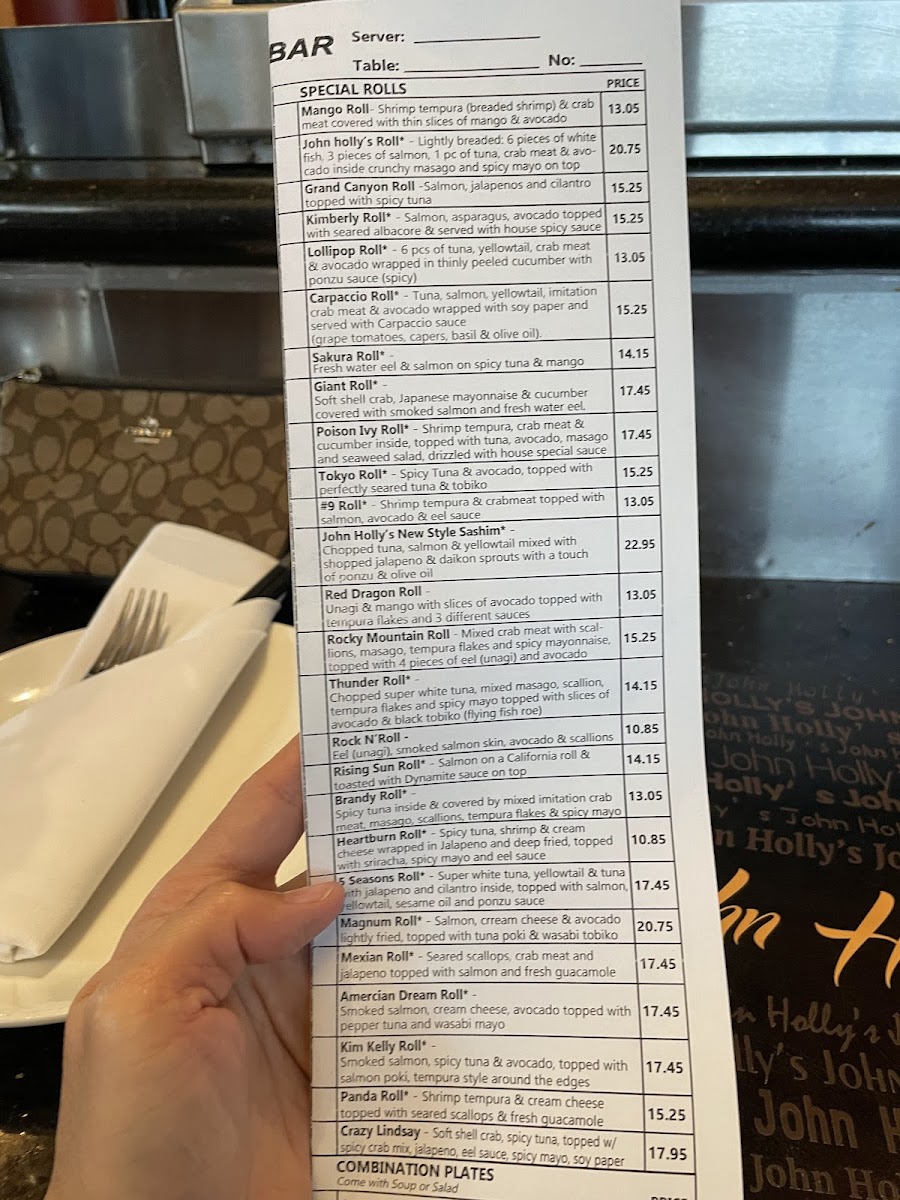 BAR
Server:
Table: No:
SPECIAL ROLLS PRICE
Mango Roll- Shrimp tempura (breaded shrimp) & crab
meat covered with thin slices of mango & avocado
13.05
John holly's Roll* - Lightly breaded: 6 pieces of white
fish, 3 pieces of salmon, 1 pc of tuna, crab meat & avo-
cado inside crunchy masago and spicy mayo on top
20.75
Grand Canyon Roll -Salmon, jalapenos and cilantro
topped with spicy tuna
15.25
Kimberly Roll* - Salmon, asparagus, avocado topped
with seared albacore & served with house spicy sauce
15.25
Lollipop Roll* - 6 pcs of tuna, yellowtail, crab meat
& avocado wrapped in thinly peeled cucumber with
ponzu sauce (spicy)
13.05
Carpaccio Roll* - Tuna, salmon, yellowtail, imitation
crab meat & avocado wrapped with soy paper and
served with Carpaccio sauce
(grape tomatoes, capers, basil & olive oil).
15.25
Sakura Roll* -
Fresh water eel & salmon on spicy tuna & mango
14.15
Giant Roll* -
Soft shell crab, Japanese mayonnaise & cucumber
covered with smoked salmon and fresh water eel.
17.45
Poison Ivy Roll* - Shrimp tempura, crab meat &
cucumber inside, topped with tuna, avocado, masago
and seaweed salad, drizzled with house special sauce
17.45
Tokyo Roll* - Spicy Tuna & avocado, topped with
perfectly seared tuna & tobiko
15.25
#9 Roll* - Shrimp tempura & crabmeat topped with
salmon, avocado & eel sauce
13.05
John Holly's New Style Sashim* -
Chopped tuna, salmon & yellowtail mixed with
shopped jalapeno & daikon sprouts with a touch
of ponzu & olive oil
22.95
Red Dragon Roll -
Unagi & mango with slices of avocado topped with
tempura flakes and 3 different sauces
13.05
Rocky Mountain Roll - Mixed crab meat with scal-
lions, masago, tempura flakes and spicy mayonnaise,
topped with 4 pieces of eel (unagi) and avocado
15.25
Thunder Roll* -
Chopped super white tuna, mixed masago, scallion,
tempura flakes and spicy mayo topped with slices of
avocado & black tobiko (flying fish roe)
14.15
Rock N'Roll -
Eel (unagi), smoked salmon skin, avocado & scallions
10.85
Rising Sun Roll* - Salmon on a California roll &
toasted with Dynamite sauce on top
14.15
Brandy Roll* -
Spicy tuna inside & covered by mixed imitation crab
meat, masago, scallions, tempura flakes & spicy mayo
13.05
Heartburn Roll* - Spicy tuna, shrimp & cream
cheese wrapped in Jalapeno and deep fried, topped
with sriracha, spicy mayo and eel sauce
10.85
5 Seasons Roll* - Super white tuna, yellowtail & tuna
with jalapeno and cilantro inside, topped with salmon,
yellowtail, sesame oil and ponzu sauce
17.45
Magnum Roll* - Salmon, crream cheese & avocado
lightly fried, topped with tuna poki & wasabi tobiko
20.75
Mexian Roll* - Seared scallops, crab meat and
jalapeno topped with salmon and fresh guacamole
17.45
Amercian Dream Roll* -
Smoked salmon, cream cheese, avocado topped with
pepper tuna and wasabi mayo
17.45
Kim Kelly Roll* -
Smoked salmon, spicy tuna & avocado, topped with
salmon poki, tempura style around the edges
17.45
Panda Roll* - Shrimp tempura & cream cheese
topped with seared scallops & fresh guacamole
15.25
Crazy Lindsay - Soft shell crab, spicy tuna, topped w/
spicy crab mix, jalapeno, eel sauce, spicy mayo, soy paper
17.95
COMBINATION PLATES
Come with Soup or Salad
PRICE
COACH
John Holly'
OLLY'S JOHN
ohn Holly' s
John Holly
John Holly
Holly' s Joh
s John Ho
n Holly's Jo
hn H
n Holly's J
lly's JOHN
John H
John Ho